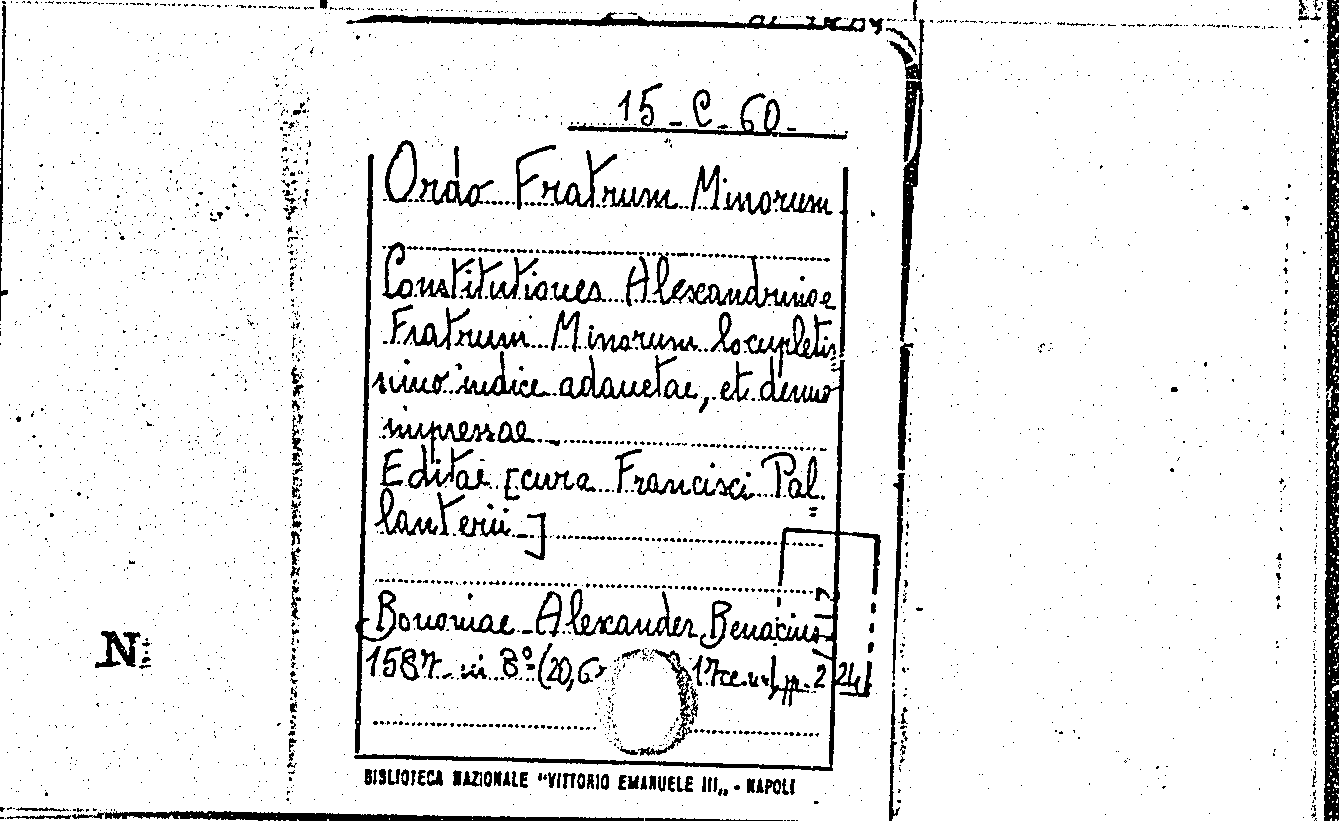 15-C-60-
Ordo Fratrum Minorum
Constitutiones Alexandrinae
Fratrum Minorum locupletis
simo indice adauctae, et denuo
impressae -
Editae [cura Francisci Pal=
lanterii-]
Bononiae - Alexander Benacius-
1587- in 8º (20,6 17 cc. pp. 224
BIBLIOTECA NAZIONALE "VITTORIO EMANUELE III„ - NAPOLI
N